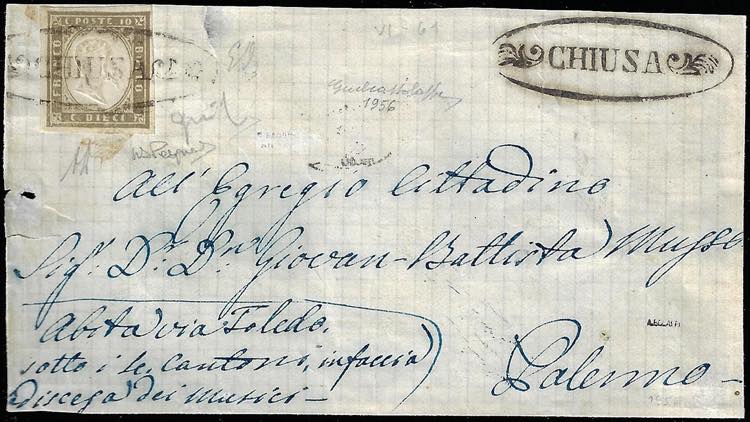 C. POSTE 10
FRANCO
BOLLO
C. DIECI
CHIUSA
CHIUSA
VI - 61
1956
All' Egregio Cittadino
Sigr. Dr. Dn. Giovan-Battista Musso
Abita via Toledo,
sotto i le Cantoni, in faccia
discesa dei Musici -
Palermo -